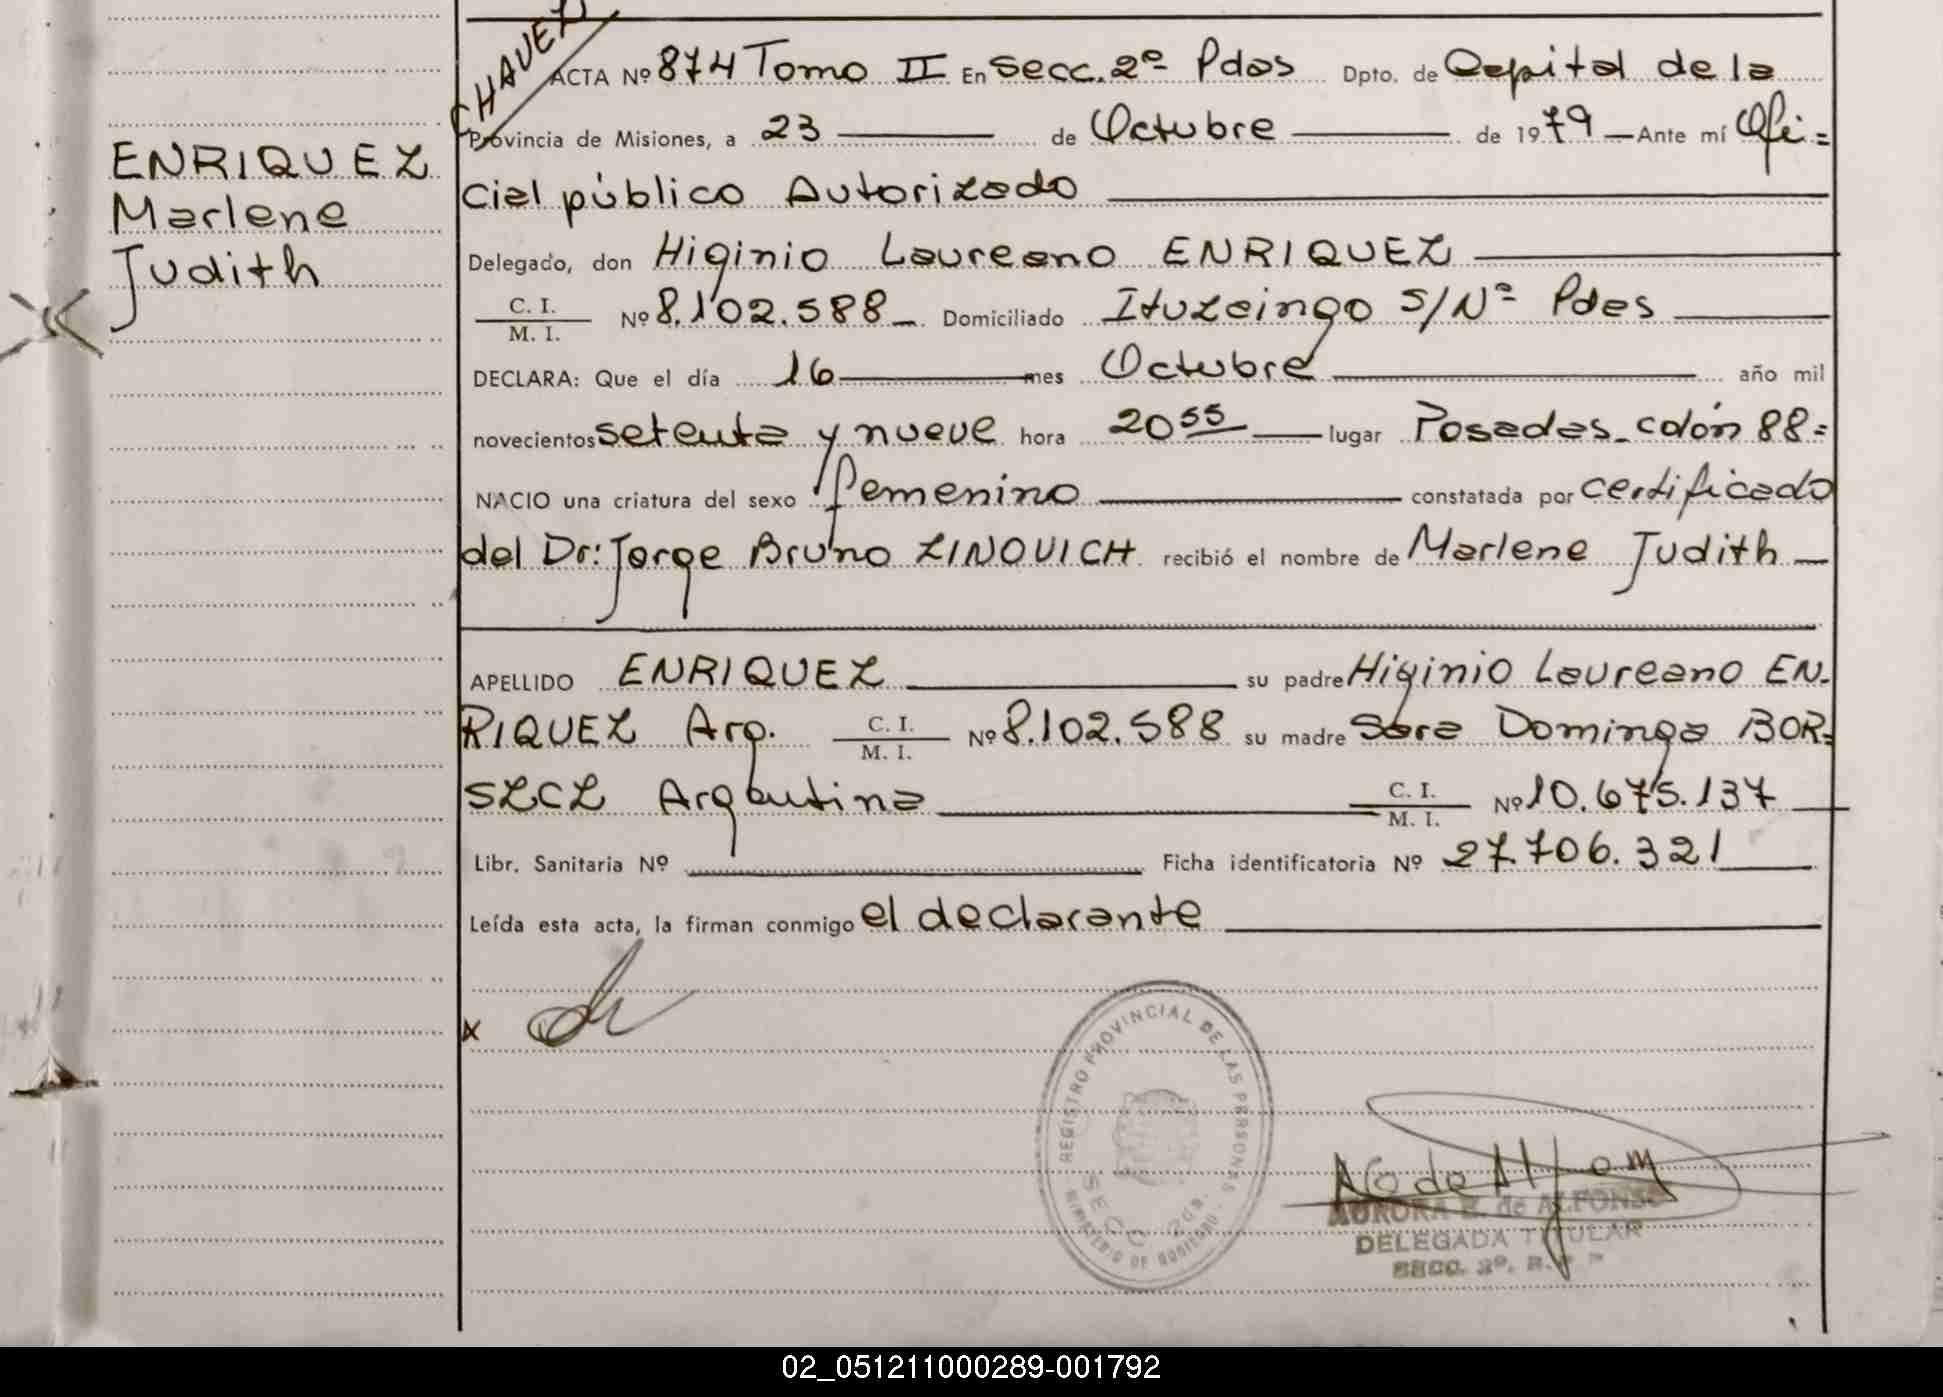 CHAVEZ
ACTA Nº 874 Tomo II En Secc. 2º Pdas Dpto. de Capital de la
Provincia de Misiones, a 23 de Octubre de 1979 Ante mí Ofi=
cial público Autorizado
Delegado, don Higinio Laureano ENRIQUEZ
C. I.
M. I.
Nº 8.102.588 Domiciliado Ituzaingo S/Nº Pdas
DECLARA: Que el día 16 mes Octubre año mil
novecientos setenta y nueve hora 20 55 lugar Posadas-colón 88=
NACIO una criatura del sexo femenino constatada por certificado
del Dr: Jorge Bruno LINOVICH recibió el nombre de Marlene Judith
ENRIQUEZ
Marlene
Judith
APELLIDO ENRIQUEZ su padre Higinio Laureano EN-
RIQUEZ Arg. C. I. M. I. Nº 8.102.588 su madre Sara Dominga BOR=
SZCZ Argentina C. I. M. I. Nº 10.675.137
Libr. Sanitaria Nº Ficha identificatoria Nº 27.706.321
Leída esta acta, la firman conmigo el declarante
x
REGISTRO PROVINCIAL DE LAS PERSONAS
MINISTERIO DE GOBIERNO
SECC. 2da.
AURORA de ALFONSO
DELEGADA TITULAR
SECC. 2º.
02_051211000289-001792